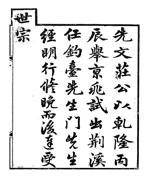 先文莊公以乾隆丙
辰舉京兆試出荆溪
任釣臺先生門先生
經明行修晚而後達受
世宗